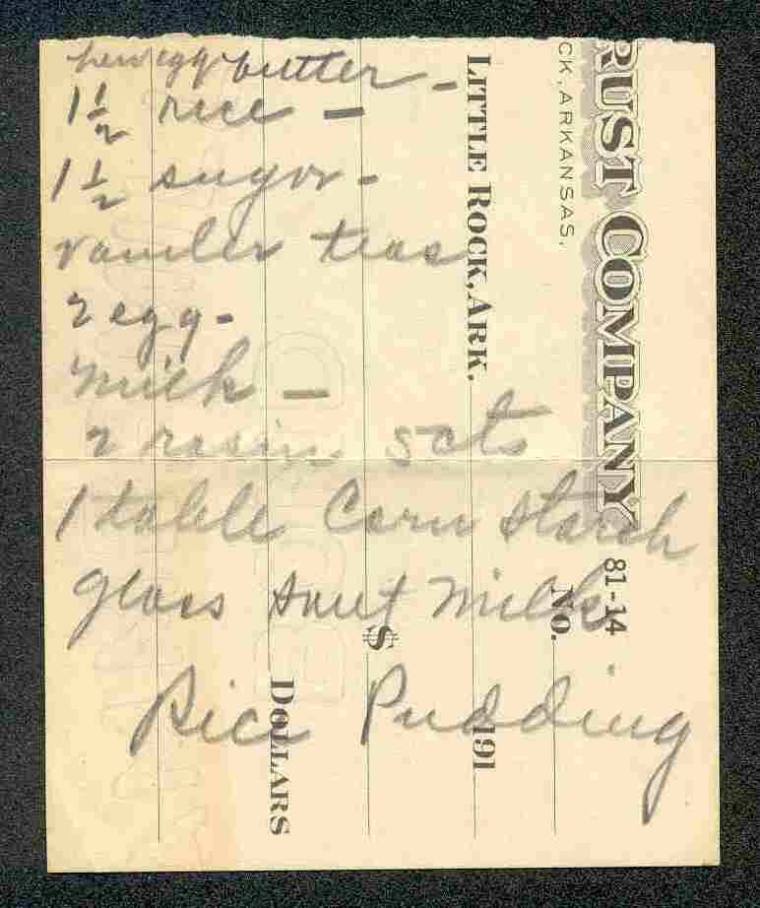 egg butter -
1½ rice -
1½ sugar -
vaniler teas
2 egg -
milk -
2 rasin 5cts
1 table Corn starch
glass sweet milk
Rice Pudding
RUST COMPANY
CK, ARKANSAS.
81-14
LITTLE ROCK, ARK.
No.
191
$
DOLLARS